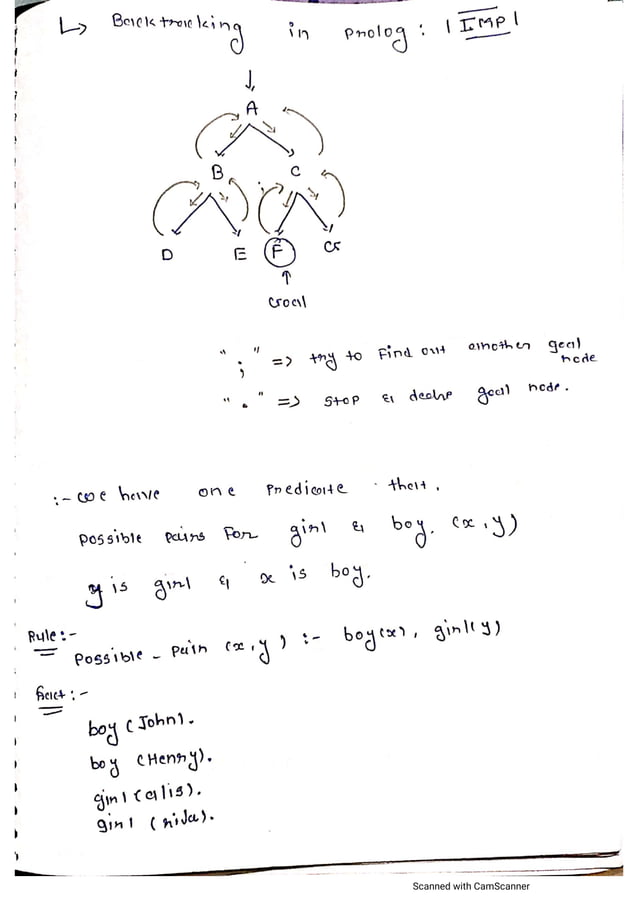 ↳ Backtracking in Prolog : | IMP |
A
B C
D E F G
Goal
" ; " => try to find out another goal
node
" . " => stop & declare goal node.
:- we have one Predicate that.
possible pairs for girl & boy. (x, y)
y is girl & x is boy.
Rule :-
possible - pair (x, y) :- boy(x), girl(y)
fact :-
boy (John).
boy (Henry).
girl (alis).
girl
Scanned with CamScanner